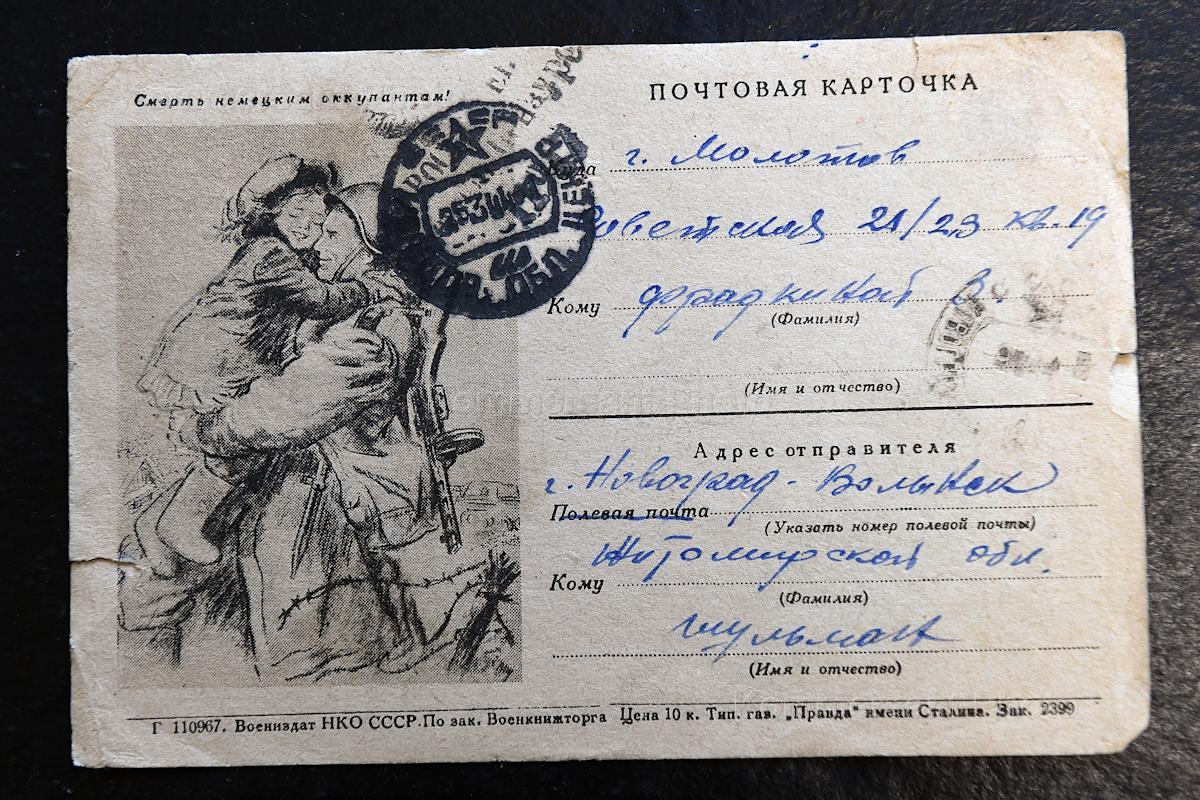 Смерть немецким оккупантам!
ПОЧТОВАЯ КАРТОЧКА
Куда г. Молотов
Советская 21/23 кв. 19
Кому Фрадкиной В.
(Фамилия)
(Имя и отчество)
Адрес отправителя
г. Новоград-Волынск
Полевая почта
(Указать номер полевой почты)
Житомирской обл.
Кому
(Фамилия)
Шульман
(Имя и отчество)
Г 110967. Воениздат НКО СССР. По зак. Военкнижторга Цена 10 к. Тип. газ. „Правда“ имени Сталина. Зак. 2399